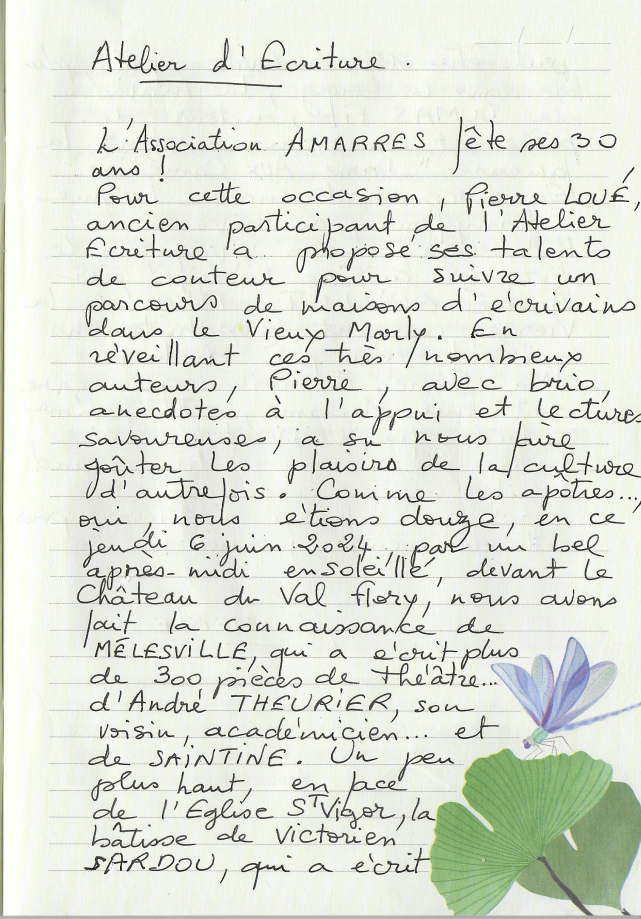 Atelier d'Ecriture.
L'Association AMARRES fête ses 30
ans !
Pour cette occasion, Pierre LOUÉ,
ancien participant de l'Atelier
Ecriture a proposé ses talents
de conteur pour suivre un
parcours de maisons d'écrivains
dans le Vieux Marly. En
réveillant ces très nombreux
auteurs, Pierre, avec brio,
anecdotes à l'appui et lectures
savoureuses, a su nous faire
goûter les plaisirs de la culture
d'autrefois. Comme les apôtres...,
oui, nous étions douze, en ce
jeudi 6 juin 2024 par un bel
après-midi ensoleillé, devant le
Château du Val flory, nous avons
fait la connaissance de
MÉLESVILLE, qui a écrit plus
de 300 pièces de théâtre...
d'André THEURIER, son
voisin, académicien... et
de SAINTINE. Un peu
plus haut, en face
de l'Eglise St Vigor, la
bâtisse de Victorien
SARDOU, qui a écrit